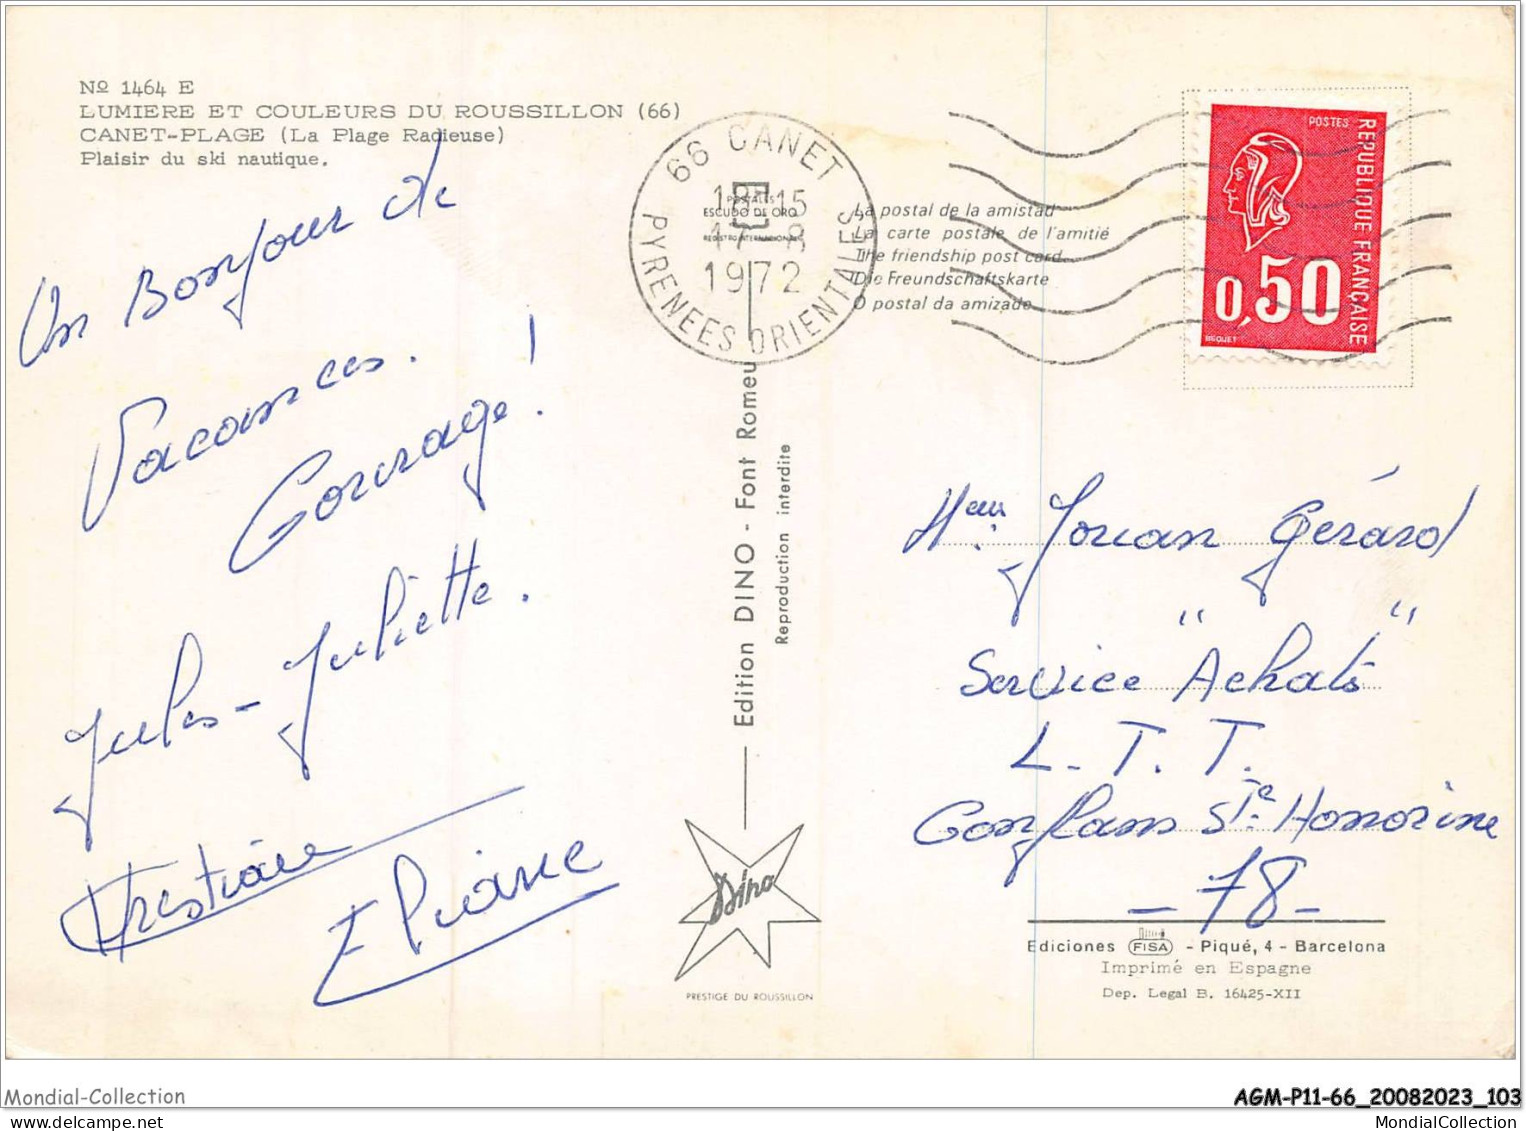 Nº 1464 E
LUMIERE ET COULEURS DU ROUSSILLON (66)
CANET-PLAGE (La Plage Radieuse)
Plaisir du ski nautique.
Un Bonjour de
Vacances.
Courage !
Jules - Juliette.
Eliane
66 CANET
18H15
17-8
1972
PYRENEES ORIENTALES
POSTALES
ESCUDO DE ORO
REGISTRO INTERNACIONAL
La postal de la amistad
La carte postale de l'amitié
The friendship post card
Die Freundschaftskarte
O postal da amizade
POSTES
REPUBLIQUE FRANÇAISE
0,50
BEQUET
Edition DINO - Font Romeu
Reproduction interdite
Dino
PRESTIGE DU ROUSSILLON
Jouan Gérard
Service "Achats"
L.T.T.
Conflans Ste Honorine
- 78 -
Ediciones FISA - Piqué, 4 - Barcelona
Imprimé en Espagne
Dep. Legal B. 16425-XII
Mondial-Collection
AGM-P11-66_20082023_103
MondialCollection